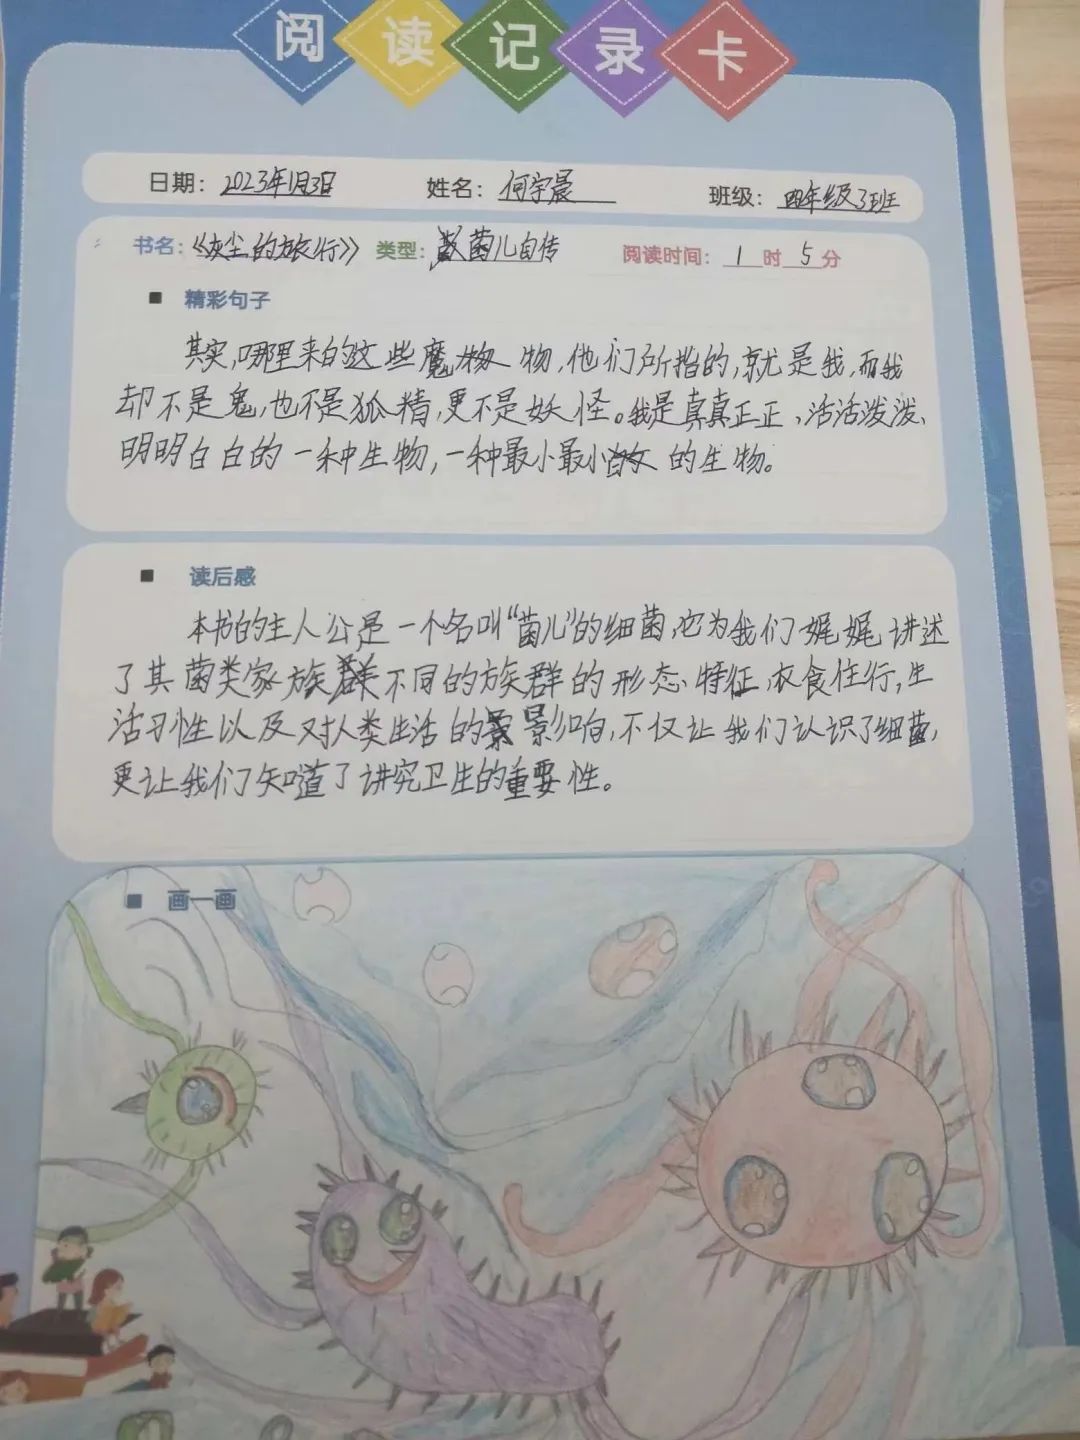 阅读记录卡
日期：2023年1月3日 姓名：何宇晨 班级：四年级3班
书名：《灰尘的旅行》 类型：菌儿自传 阅读时间：1时5分
■ 精彩句子
其实，哪里来的这些魔物，他们所指的，就是我，而我
却不是鬼，也不是狐精，更不是妖怪。我是真真正正、活活泼泼、
明明白白的一种生物，一种最小最小的生物。
■ 读后感
本书的主人公是一个名叫“菌儿”的细菌，它为我们娓娓讲述
了其菌类家族不同的族群的形态、特征，衣食住行，生
活习性以及对人类生活的影响，不仅让我们认识了细菌，
更让我们知道了讲究卫生的重要性。
■ 画一画